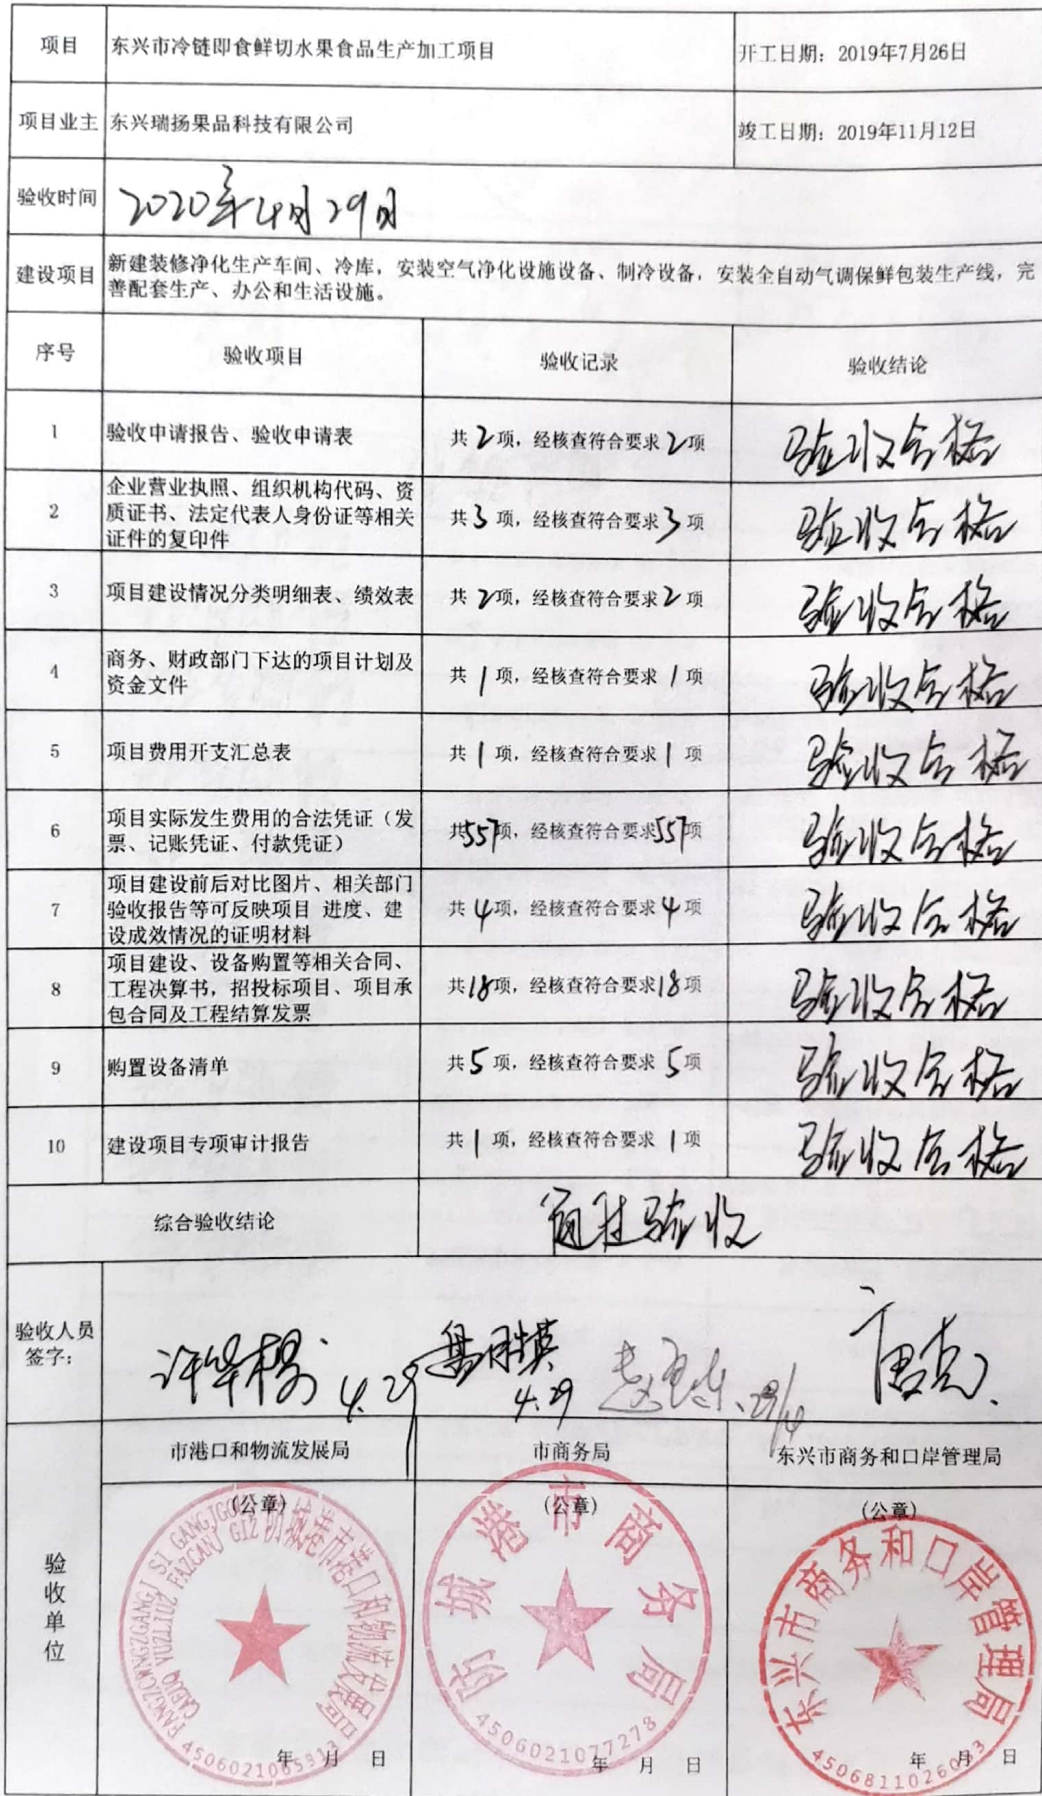 项目 东兴市冷链即食鲜切水果食品生产加工项目 开工日期：2019年7月26日
项目业主 东兴瑞扬果品科技有限公司 竣工日期：2019年11月12日
验收时间 2020年4月29日
建设项目 新建装修净化生产车间、冷库，安装空气净化设施设备、制冷设备，安装全自动气调保鲜包装生产线，完
善配套生产、办公和生活设施。
序号 验收项目 验收记录 验收结论
1 验收申请报告、验收申请表 共2项，经核查符合要求2项 验收合格
企业营业执照、组织机构代码、资
2 质证书、法定代表人身份证等相关 共3项，经核查符合要求3项 验收合格
证件的复印件
3 项目建设情况分类明细表、绩效表 共2项，经核查符合要求2项 验收合格
商务、财政部门下达的项目计划及
4 资金文件 共1项，经核查符合要求1项 验收合格
5 项目费用开支汇总表 共1项，经核查符合要求1项 验收合格
项目实际发生费用的合法凭证（发
6 票、记账凭证、付款凭证） 共557项，经核查符合要求557项 验收合格
项目建设前后对比图片、相关部门
7 验收报告等可反映项目 进度、建 共4项，经核查符合要求4项 验收合格
设成效情况的证明材料
项目建设、设备购置等相关合同、
8 工程决算书，招投标项目、项目承 共18项，经核查符合要求18项 验收合格
包合同及工程结算发票
9 购置设备清单 共5项，经核查符合要求5项 验收合格
10 建设项目专项审计报告 共1项，经核查符合要求1项 验收合格
综合验收结论 通过验收
验收人员
签字：
4.29 4.29 29/4
市港口和物流发展局 市商务局 东兴市商务和口岸管理局
验收单位
(公章) (公章) (公章)
防城港市港口和物流发展局
防城港市商务局
4506021077278
东兴市商务和口岸管理局
年 月 日 年 月 日 年 月 日